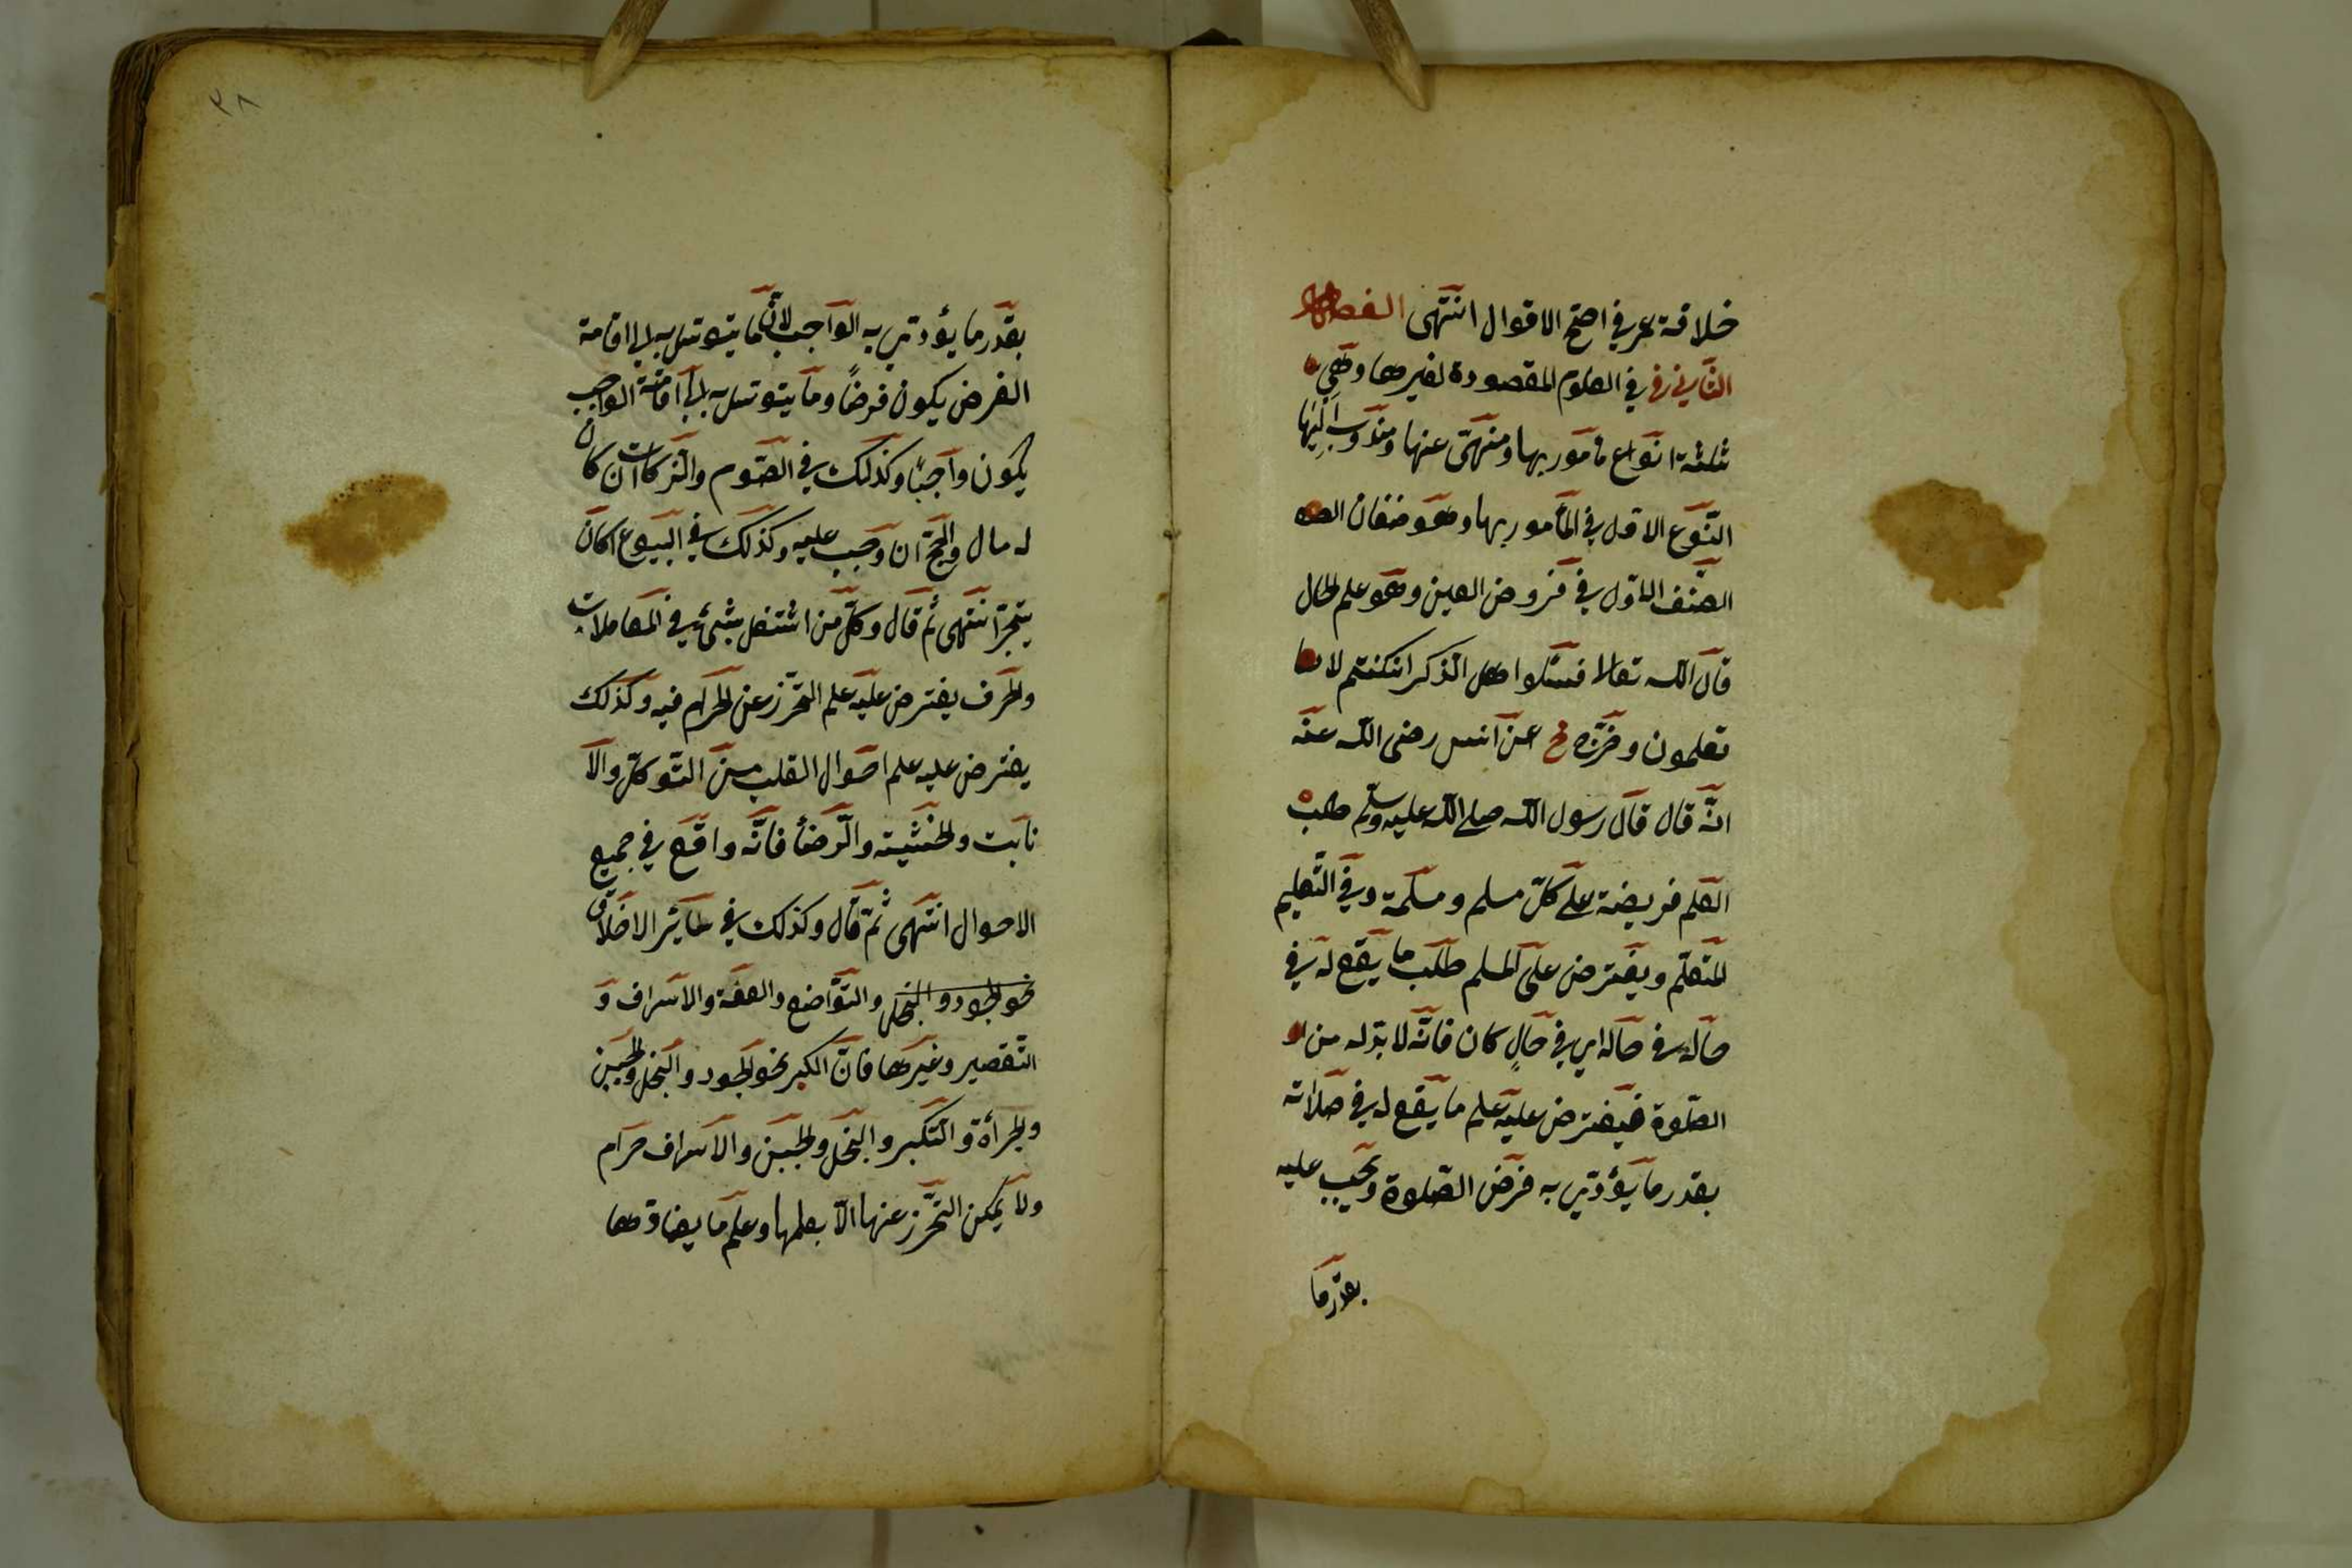 خلافة عمر في اصح الاقوال انتهى الفصل
الثاني في العلوم المقصودة لغيرها وهي
ثلثة انواع مأمور بها ومنهى عنها ومندوب اليها
النوع الاول في المأمور بها وهو صنفان
الصنف الاول في فروض العين وهو علم الحال
قال الله تعالى فسئلوا اهل الذكر ان كنتم لا
تعلمون وخرّج مج عن انس رضى الله عنه
انّه قال قال رسول الله صلى الله عليه وسلم طلب
العلم فريضة على كلّ مسلم ومسلمة وفي التعليم
المتعلّم ويفترض على المسلم طلب ما يقع له في
حاله في حاله اي في حالٍ كان فانّه لا بدّ له من
الصّلوة فيفترض عليه علم ما يقع له في صلاته
بقدر ما يؤدّي به فرض الصّلوة ويجب عليه
بقدر ما
٣٨
بقدر ما يؤدّي به الواجب لأنّ ما يتوسّل به الى اقامة
الفرض يكون فرضًا وما يتوسّل به الى اقامة الواجب
يكون واجبًا وكذلك في الصّوم والزكات ان كان
له مال والحجّ ان وجب عليه وكذلك في البيوع ان كان
يتجر انتهى ثم قال وكلّ من اشتغل بشئ في المعاملات
والحرف يفترض عليه علم التحرّز عن الحرام فيه وكذلك
يفترض عليه علم احوال القلب من التّوكّل والا
نابت والخشية والرّضأ فانّه واقع في جميع
الاحوال انتهى ثمّ قال وكذلك في سائر الاخلاق
نحو الجود والبخل والتّواضع والعفّة والاسراف و
التّقصير وغيرها فانّ الكبر نحو الجود والبخل والجبن
والجرأة والتكبر والبخل والجبن والاسراف حرام
ولا يمكن التحرّز عنها الّا بعلمها وعلم ما يضادّها